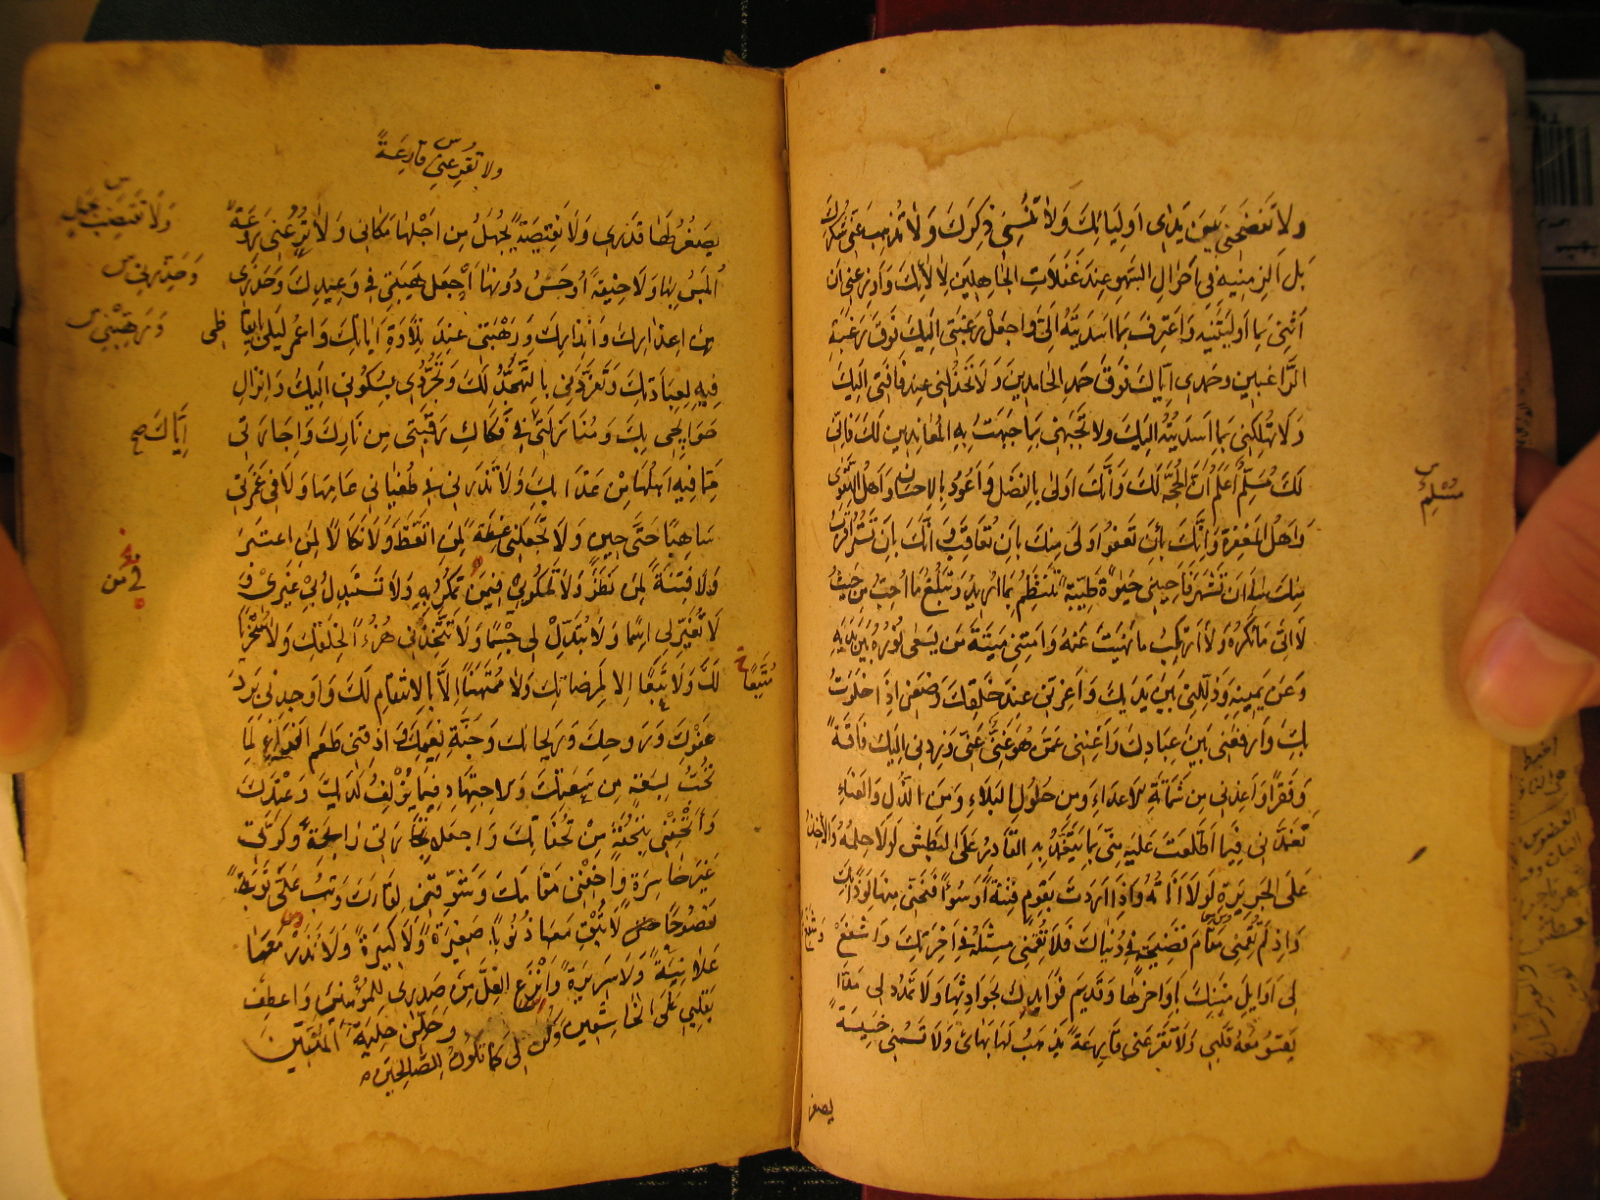 ولا تَفضحني بَين يَدَي اوليائك وَلا تُنسِني ذِكرَك وَلا تُذهِب عَنّي شُكرَك
بَل اَلزِمنيه في اَحوالِ السَهوِ عِندَ غَفَلاتِ الجاهِلينَ لِالائِكَ وَاَوزِعني اَن
اُثنِيَ بِما اَوليتَنيهِ وَاَعتَرِفَ بِما اَسدَيتَهُ اِلَيَّ وَاجعَل رَغبَتي اِلَيكَ فَوقَ رَغبَةِ
الرّاغبين وحَمدي اِيّاكَ فَوقَ حَمدِ الحامِدينَ وَلا تَخذُلني عِندَ فاقَتي اِلَيكَ
وَلا تُهلِكني بِما اَسدَيتُهُ اِلَيكَ ولا تَجبَهني بِما جَبَهتَ بِهِ المُعانِدينَ لَكَ فَاِنّي
لَكَ مُسَلِّمٌ اَعلَمُ اَنَّ الحُجَّةَ لَكَ وَاَنَّكَ اَولى بِالفَضلِ وَاَعوَدُ بِالاِحسانِ وَاَهلُ التَّقوى
وَاَهلُ المَغفِرَةِ وَاَنَّكَ بِاَن تَعفُوَ اَولى مِنكَ بِاَن تُعاقِبَ وَاَنَّكَ بِاَن تَستُرَ اَقرَبُ
مِنكَ اِلى اَن تَشهَرَ فَاَحيِني حَيوةً طَيِّبَةً تَنتَظِمُ بِما اُريدُ وَتَبلُغُ ما اُحِبُّ مِن حَيثُ
لا اتي ما تَكرَهُ وَلا اَرتَكِبُ ما نَهَيتَ عَنهُ وَاَمِتني ميتَةَ مَن يَسعى نُورُهُ بَينَ يَدَيهِ
وَعَن يَمينِهِ وَذَلِّلني بَينَ يَدَيكَ وَاَعِزَّني عِندَ خَلقِكَ وَضَعني اِذا خَلَوتُ
بِكَ وَارفَعني بَينَ عِبادِكَ وَاَغنِني عَمَّن هُوَ غَنِيٌّ عَنّي وَزِدني اِلَيكَ فاقَةً
وَفَقراً وَاَعِذني مِن شَماتَةِ الاَعداءِ وَمِن حُلولِ البَلاءِ وَمِنَ الذُّلِّ وَالعَناءِ
تَغَمَّدني فيما اَطَّلَعتَ عَلَيهِ مِنّي بِما يَتَغَمَّدُ بِهِ القادِرُ عَلَى البَطشِ لَولا حِلمُهُ وَالاخِذُ
عَلَى الجَريرَةِ لَولا اَناتُهُ وَاِذا اَرَدتَ بِقَومٍ فِتنَةً اَو سُوءاً فَنَجِّني مِنها لِواذاً بِكَ
وَاِذ لَم تُقِمني مَقامَ فَضيحَةٍ في دُنياكَ فَلا تُقِمني مِثلَهُ في اخِرَتِكَ وَاشفَع
لي اَوائِلَ مِنَنِكَ بِاَواخِرِها وَقَديمَ فَوائِدِكَ بِحَوادِثِها وَلا تَمدُد لي مَدّاً
يَقسُو مَعَهُ قَلبي وَلا تَقرَعني قارِعَةً يَذهَبُ لَها بَهائي وَلا تَسُمني خَسيسَةً
يصغر
مُسَلِّم
ولا تُقرِعني قارِعَةً
يَصغُرُ لَها قَدري وَلا نَقيصَةً يُجهَلُ مِن اَجلِها مَكاني وَلا تَرُعني رَوعَةً
اُبلِسُ بِها وَلا خيفَةً اُوجِسُ دُونَها اِجعَل هَيبَتي في وَعيدِكَ وَحَذَري
مِن اِعذارِكَ وَاِنذارِكَ وَرَهبَتي عِندَ تِلاوَةِ اياتِكَ وَاعمُر لَيلي بِايقاظي
فيهِ لِعِبادَتِكَ وَتَفَرُّدي بِالتَّهَجُّدِ لَكَ وَتَجَرُّدي بِسُكوني اِلَيكَ وَاِنزالِ
حَوائِجي بِكَ وَمُنازَلَتي في فَكاكِ رَقَبَتي مِن نارِكَ وَاِجارَتي
مِمّا فيهِ اَهلُها مِن عَذابِكَ وَلا تَذَرني في طُغياني عامِهاً وَلا في غَمرَتي
ساهِياً حَتّى حينٍ وَلا تَجعَلني عِظَةً لِمَنِ اتَّعَظَ وَلا نَكالاً لِمَنِ اعتَبَرَ
وَلا فِتنَةً لِمَن نَظَرَ وَلا تَمكُر بي فيمَن تَمكُرُ بِهِ وَلا تَستَبدِل بي غَيري وَ
لا تُغَيِّر لي اِسماً وَلا تُبَدِّل لي جِسماً وَلا تَتَّخِذني هُزُواً لِخَلقِكَ وَلا سُخرِيّاً
لَكَ وَلا تَبَعاً اِلا لِمَرضاتِكَ وَلا مُمتَهَناً اِلاّ بِالانتِقامِ لَكَ وَاَوجِدني بَردَ
عَفوِكَ وَرَوحِكَ وَرَيحانِكَ وَجَنَّةِ نَعيمِكَ وَاَذِقني طَعمَ الفَراغِ لِما
تُحِبُّ بِسَعَةٍ مِن سَعَتِكَ وَالاجتِهادِ فيما يُزلِفُ لَدَيكَ وَعِندَكَ
وَاَتحِفني بِتُحفَةٍ مِن تُحَفاتِكَ وَاجعَل تِجارَتي رابِحَةً وَكَرَّتي
غَيرَ خاسِرَةٍ وَاَخِفني مَقامَكَ وَشَوِّقني لِقاءَكَ وَتُب عَلَيَّ تَوبَةً
نَصوحاً لا تُبقِ مَعَها ذُنوباً صَغيرَةً وَلا كَبيرَةً وَلا تَذَر مَعَها
عَلانِيَةً وَلا سَريرَةً وَانزَعِ الغِلَّ مِن صَدري لِلمُؤمِنينَ وَاعطِف
بِقَلبي عَلَى الخاشِعينَ وَكُن لي كَما تَكونُ لِلصّالِحينَ
وَحَلِّني حِليَةَ المُتَّقينَ
وَحَذِّرني
وَرَهِّبني
اِيّاكَ صح